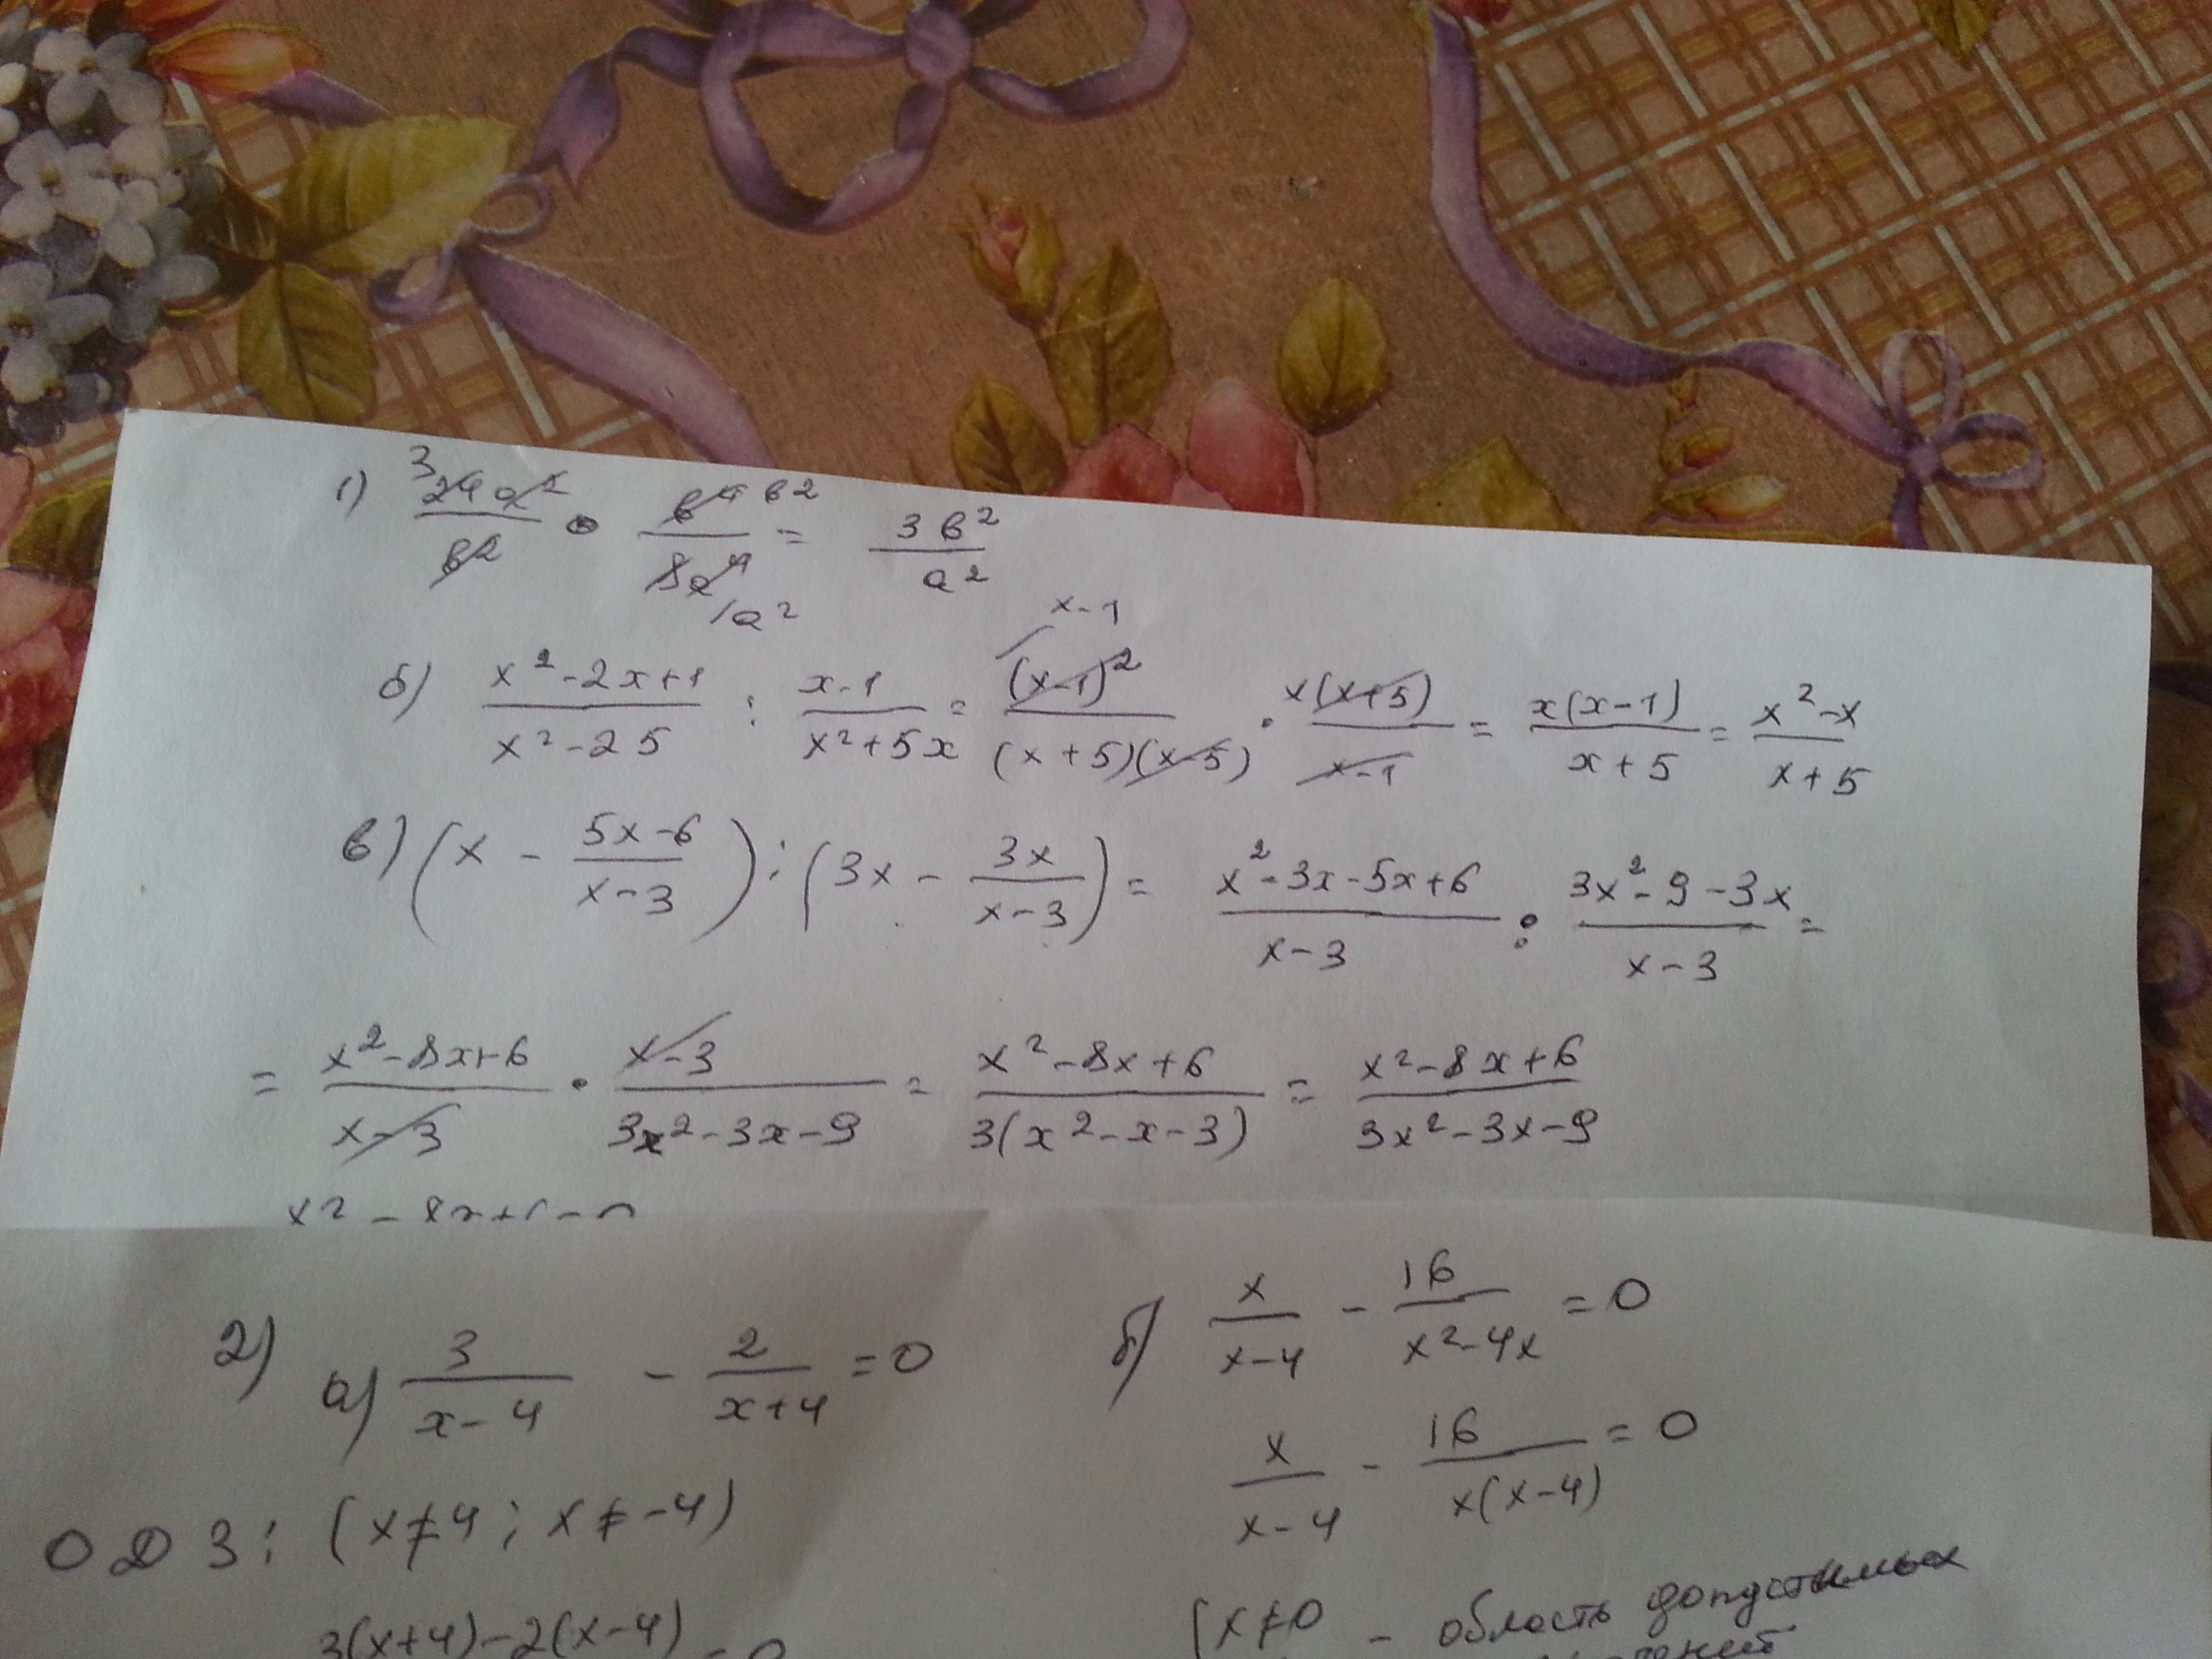 1) 3 24a² / в² · в⁴ в² / 8a⁴ 1a² = 3в² / a²
x-1
б) x²-2x+1 / x²-25 : x-1 / x²+5x = (x-1)² / (x+5)(x-5) · x(x+5) / x-1 = x(x-1) / x+5 = x²-x / x+5
в) (x - 5x-6 / x-3) : (3x - 3x / x-3) = x²-3x-5x+6 / x-3 : 3x²-9-3x / x-3 =
= x²-8x+6 / x-3 · x-3 / 3x²-3x-9 = x²-8x+6 / 3(x²-x-3) = x²-8x+6 / 3x²-3x-9
2) а) 3 / x-4 - 2 / x+4 = 0
ОДЗ: (x≠4; x≠-4)
3(x+4)-2(x-4) = 0
б) x / x-4 - 16 / x²-4x = 0
x / x-4 - 16 / x(x-4) = 0
(x≠0 - область допустимых